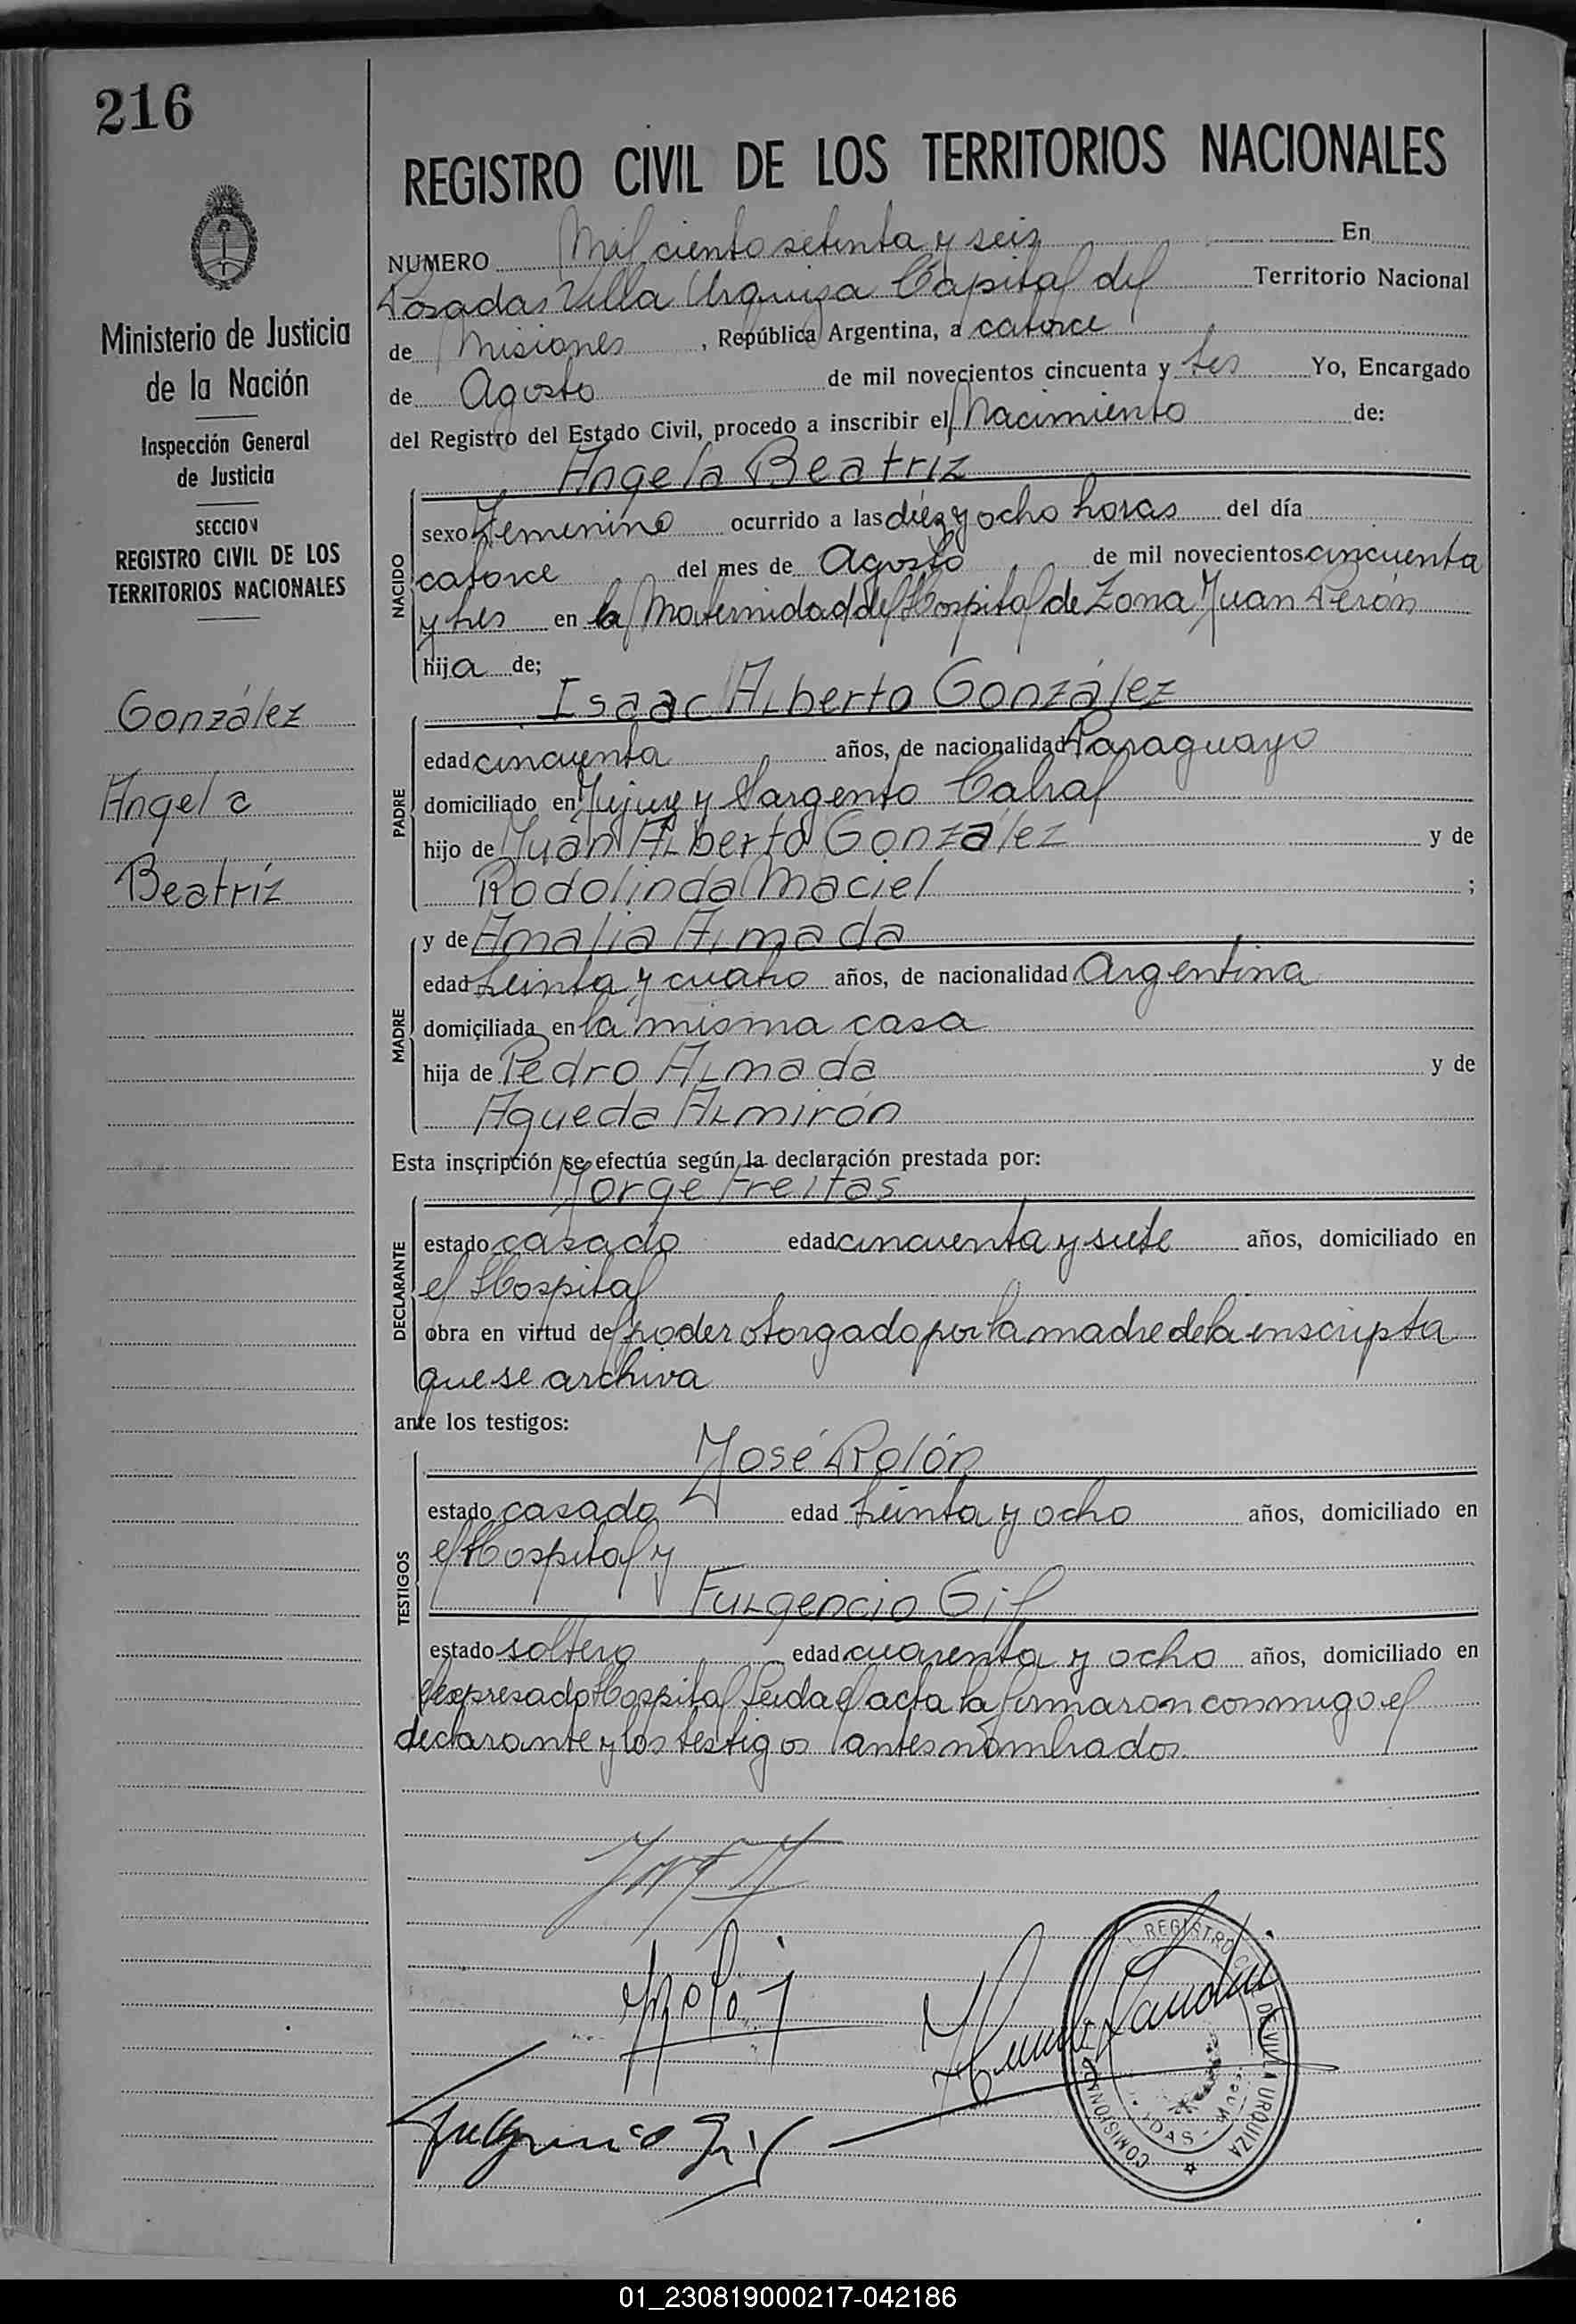 216
Ministerio de Justicia
de la Nación
Inspección General
de Justicia
SECCION
REGISTRO CIVIL DE LOS
TERRITORIOS NACIONALES
González
Angela
Beatríz
REGISTRO CIVIL DE LOS TERRITORIOS NACIONALES
NUMERO Mil ciento setenta y seis En
Posadas Villa Urquiza Capital del Territorio Nacional
de Misiones, República Argentina, a catorce
de Agosto de mil novecientos cincuenta y tres Yo, Encargado
del Registro del Estado Civil, procedo a inscribir el Nacimiento de:
Angela Beatriz
NACIDO
sexo Femenino ocurrido a las diez y ocho horas del día
catorce del mes de Agosto de mil novecientos cincuenta
y tres en la Maternidad del Hospital de Zona Juan Perón
hija de;
Isaac Alberto González
PADRE
edad cincuenta años, de nacionalidad Paraguayo
domiciliado en Jujuy y Sargento Cabral
hijo de Juan Alberto González y de
Rodolinda Maciel ;
y de Amalia Almada
MADRE
edad treinta y cuatro años, de nacionalidad Argentina
domiciliada en la misma casa
hija de Pedro Almada y de
Agueda Almirón
Esta inscripción se efectúa según la declaración prestada por:
Jorge Freitas
DECLARANTE
estado casado edad cincuenta y siete años, domiciliado en
el Hospital
obra en virtud del poder otorgado por la madre de la inscripta
que se archiva
ante los testigos:
José Rolón
TESTIGOS
estado casado edad treinta y ocho años, domiciliado en
el Hospital y
Fulgencio Gil
estado soltero edad cuarenta y ocho años, domiciliado en
el expresado Hospital Leida el acta la firmaron conmigo el
declarante y los testigos antes nombrados.
Fulgencio Gil
REGISTRO DE VILLA URQUIZA
01_230819000217-042186